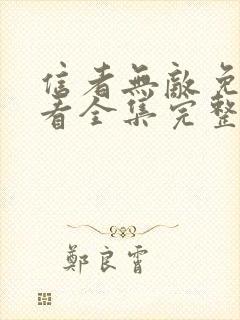 信者無敵免
者全集完整
鄭良霄